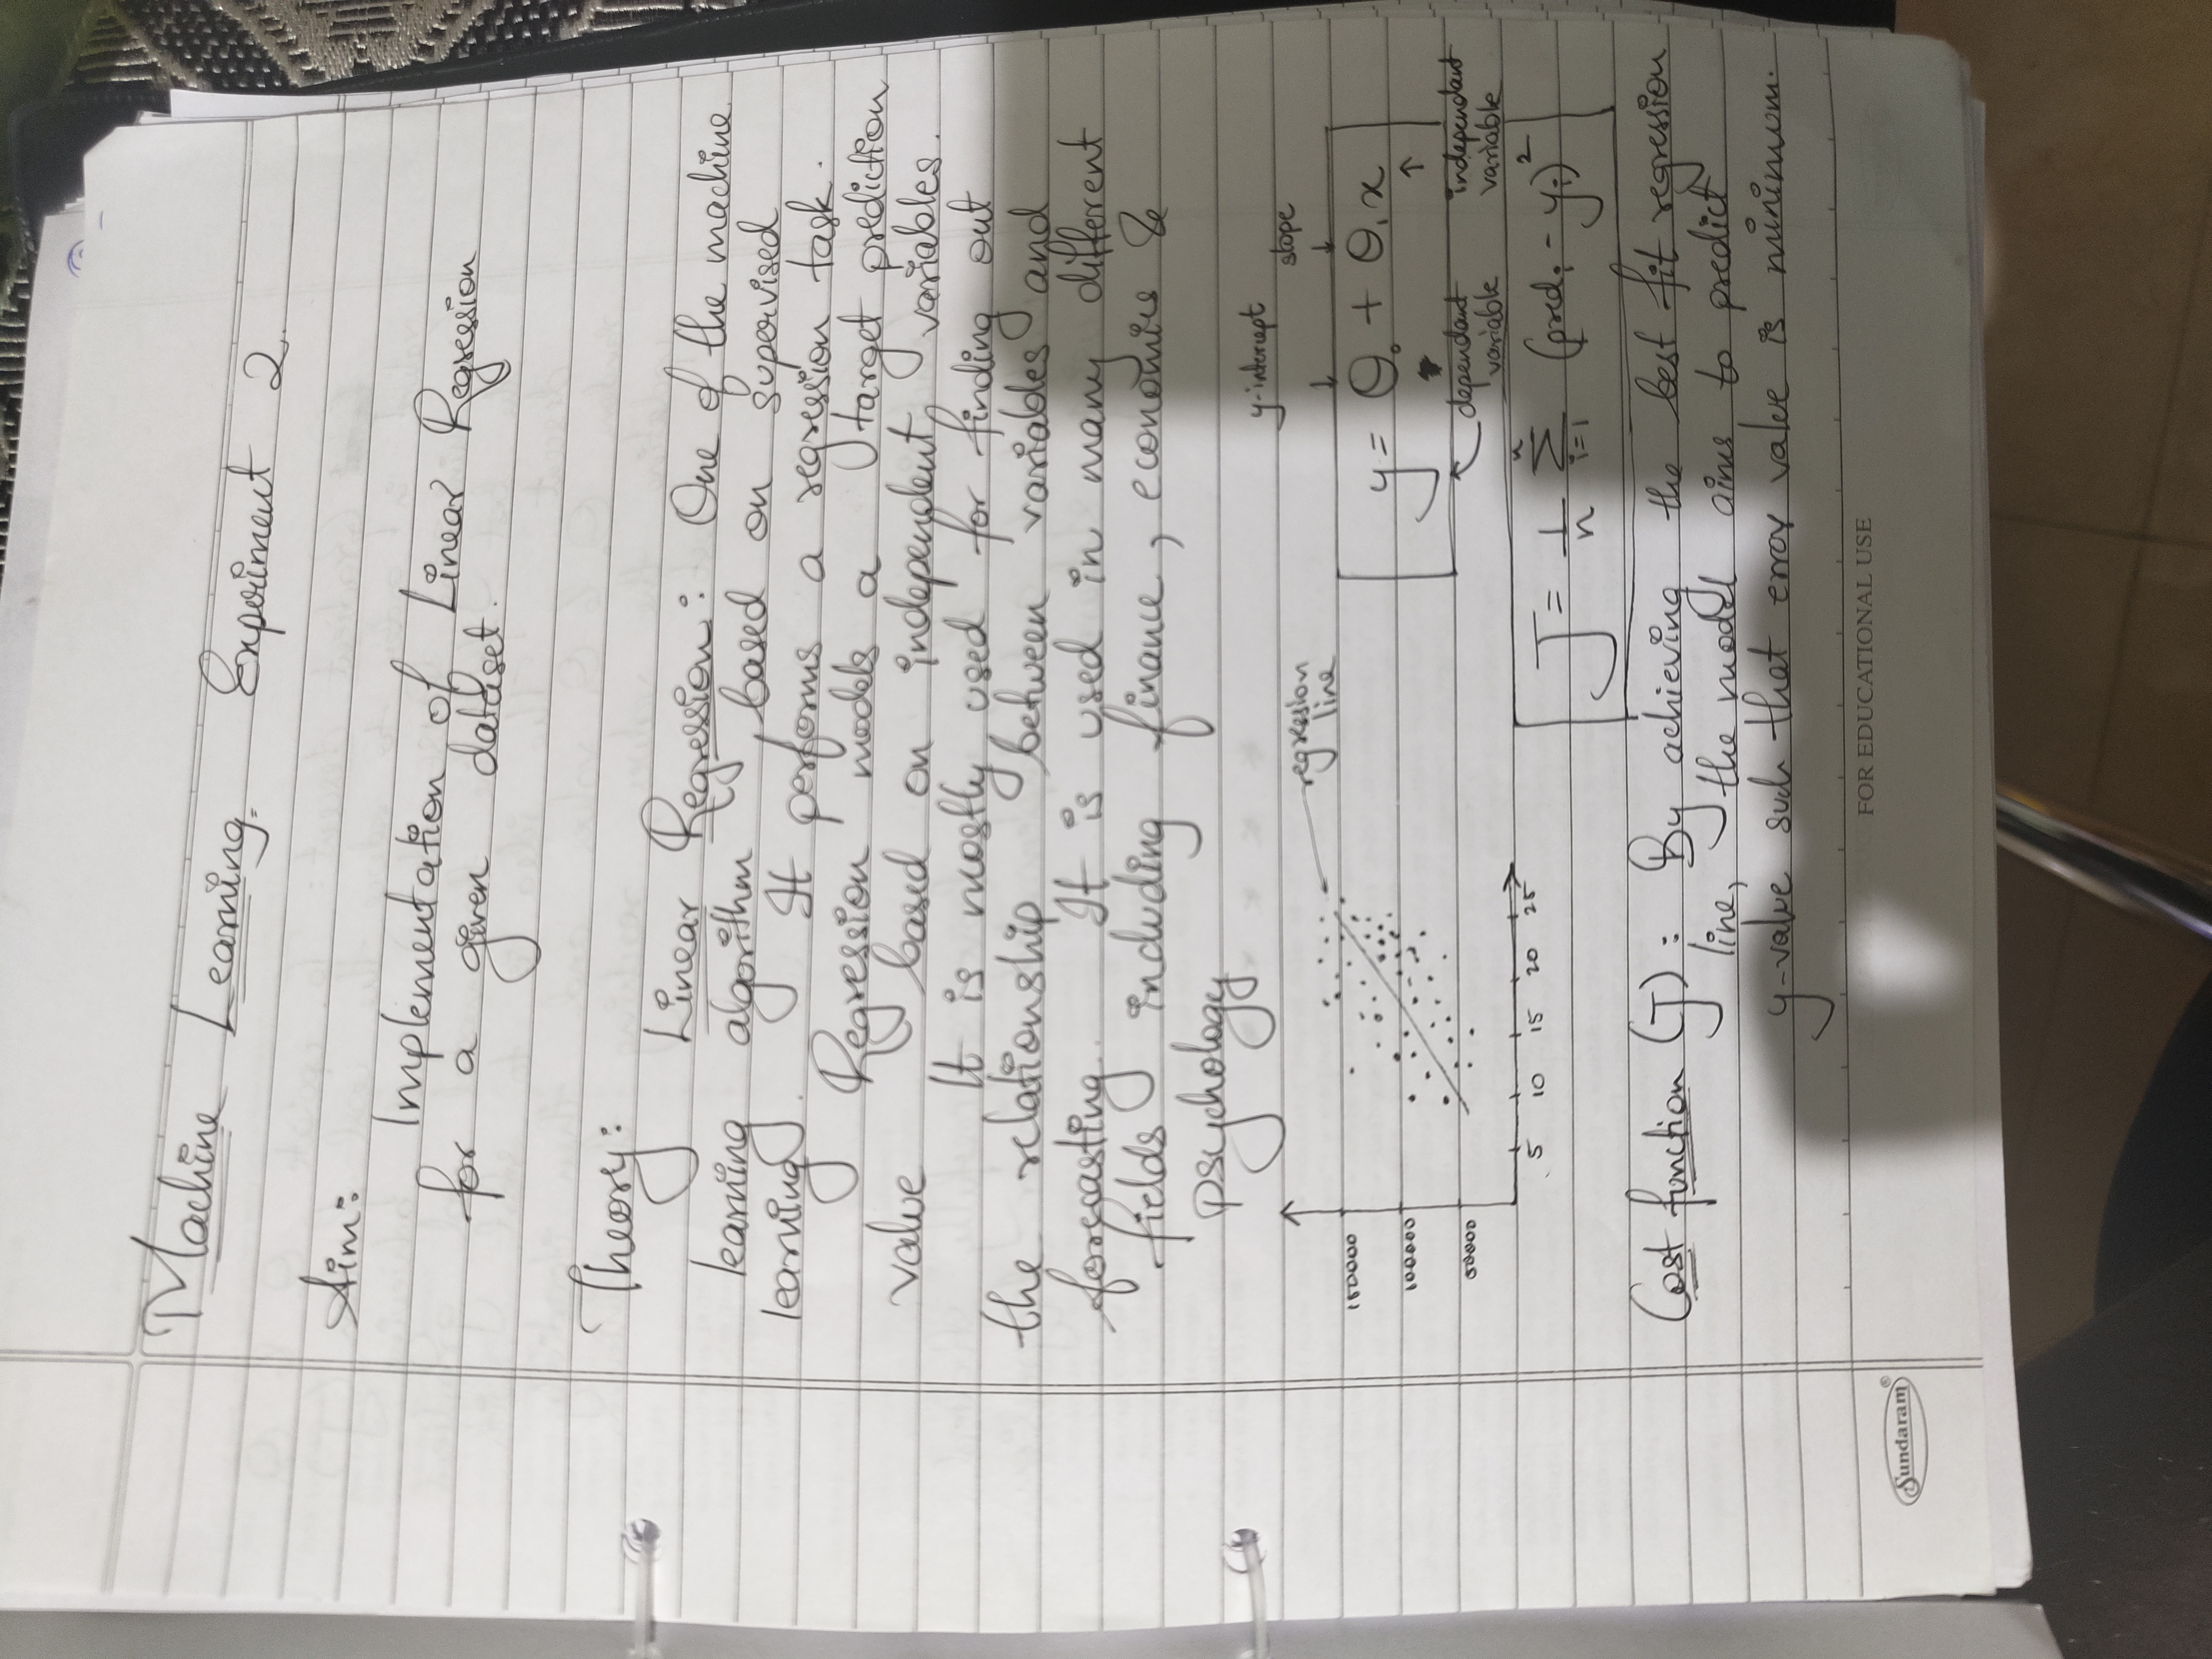 Machine Learning. Experiment 2.
Aim:
Implementation of Linear Regression
for a given dataset.
Theory:
Linear Regression: One of the machine
learning algorithm based on supervised
learning. It performs a regression task.
Regression models a target prediction
value based on independent variables.
It is mostly used for finding out
the relationship between variables and
forecasting. It is used in many different
fields including finance, economics &
psychology
regression
line
150000
100000
50000
5 10 15 20 25
y-intercept
slope
y = θ₀ + θ₁x
dependant
variable
independant
variable
J = 1/n n∑i=1 (predᵢ - yᵢ)²
Cost function (J): By achieving the best fit regression
line, the model aims to predict
y-value such that error value is minimum.
Sundaram®
FOR EDUCATIONAL USE